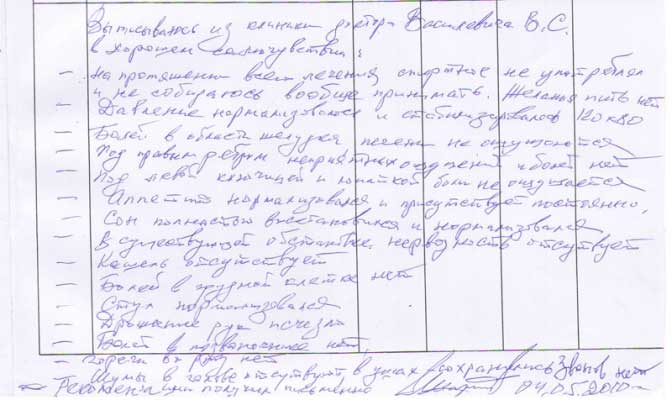 Выписываюсь из клиники доктора Василевича В.С.
в хорошем самочувствии:
— на протяжении всего лечения спиртное не употреблял
и не собираюсь вообще принимать. Желания пить нет
— Давление нормализовалось и стабилизировалось 120x80
— Болей в области желудка печени не ощущаются
— Под правым ребром неприятных ощущений и болей нет
— Под левой ключицей и лопаткой боли не ощущается
— Аппетит нормализовался и присутствует постоянно,
— Сон полностью восстановился и нормализовался
— В существующей обстановке нервозность отсутствует
— Кашель отсутствует
— Болей в грудной клетке нет
— Стул нормализовался
— Дрожание рук исчезло
— Болей в позвоночнике нет
— горечи во рту нет
— Шумы в голове отсутствуют, в ушах сохранились Звонов нет
Рекомендации получил письменно 04.05.2010г